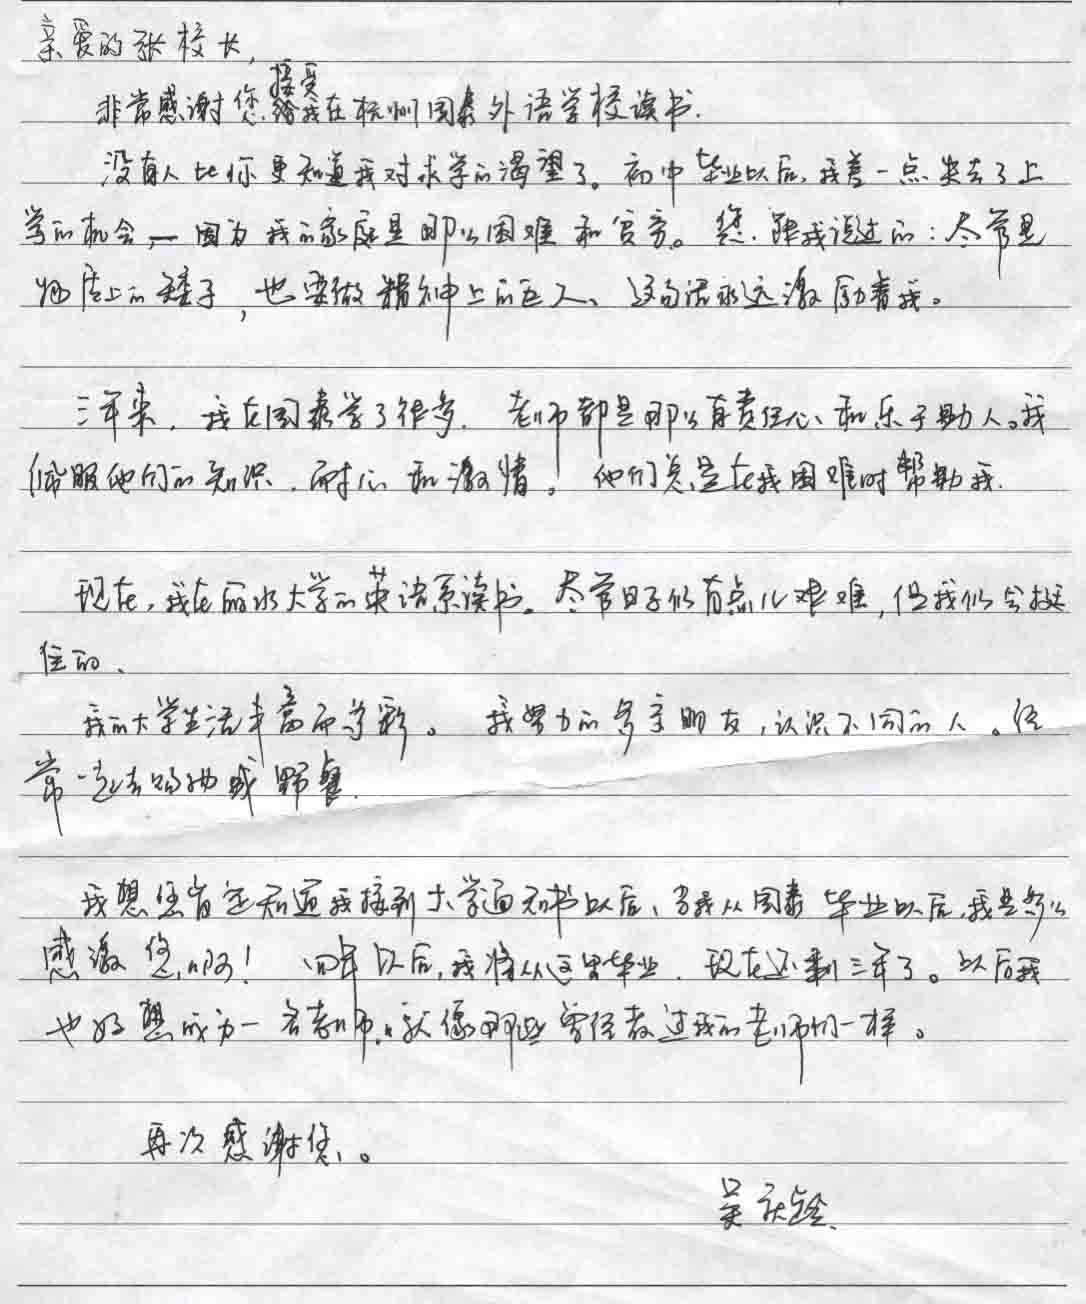 亲爱的张校长，
接受
非常感谢您我在杭州国泰外语学校读书.
没有人比你更知道我对求学的渴望了。初中毕业以后，我差一点失去了上
学的机会，—因为我的家庭是那么困难和贫穷。您.跟我说过的：尽管是
物质上的矮子，也要做精神上的巨人、这句话永远激励着我。
三年来，我在国泰学了很多.老师都是那么有责任心和乐于助人。我
佩服他们的知识.耐心和激情。他们总是在我困难时帮助我.
现在，我在丽水大学的英语系读书。尽管日子仍有点儿艰难，但我仍会挺
住的.
我的大学生活丰富而多彩。我努力的多交朋友，认识不同的人。经
常一起去购物或野餐.
我想您肯定知道我接到大学通知书以后、当我从国泰毕业以后，我是多么
感激您啊！四年以后，我将从这里毕业.现在还剩三年了。以后我
也好想成为一名教师.就像那些曾经教过我的老师们一样。
再次感谢您。